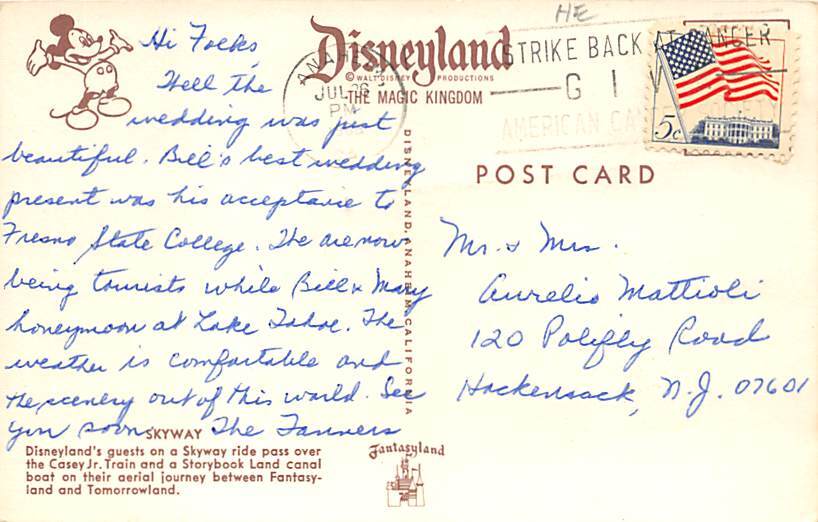 Hi Folks,
Well the
wedding was just
beautiful. Bill's best wedding
present was his acceptance to
Fresno State College. We are now
being tourists while Bill & Mary
honeymoon at Lake Tahoe. The
weather is comfortable and
the scenery out of this world. See
you soon. The Tanners
Disneyland
© WALT DISNEY PRODUCTIONS
THE MAGIC KINGDOM
HE
ANAHEIM
JUL 26
PM
STRIKE BACK AT CANCER
GIV
AMERICAN CANCER SOCIETY
5c
DISNEYLAND, ANAHEIM, CALIFORNIA
POST CARD
Mr. & Mrs.
Aurelio Mattioli
120 Polifly Road
Hackensack, N.J. 07601
SKYWAY
Disneyland's guests on a Skyway ride pass over
the Casey Jr. Train and a Storybook Land canal
boat on their aerial journey between Fantasy-
land and Tomorrowland.
Fantasyland